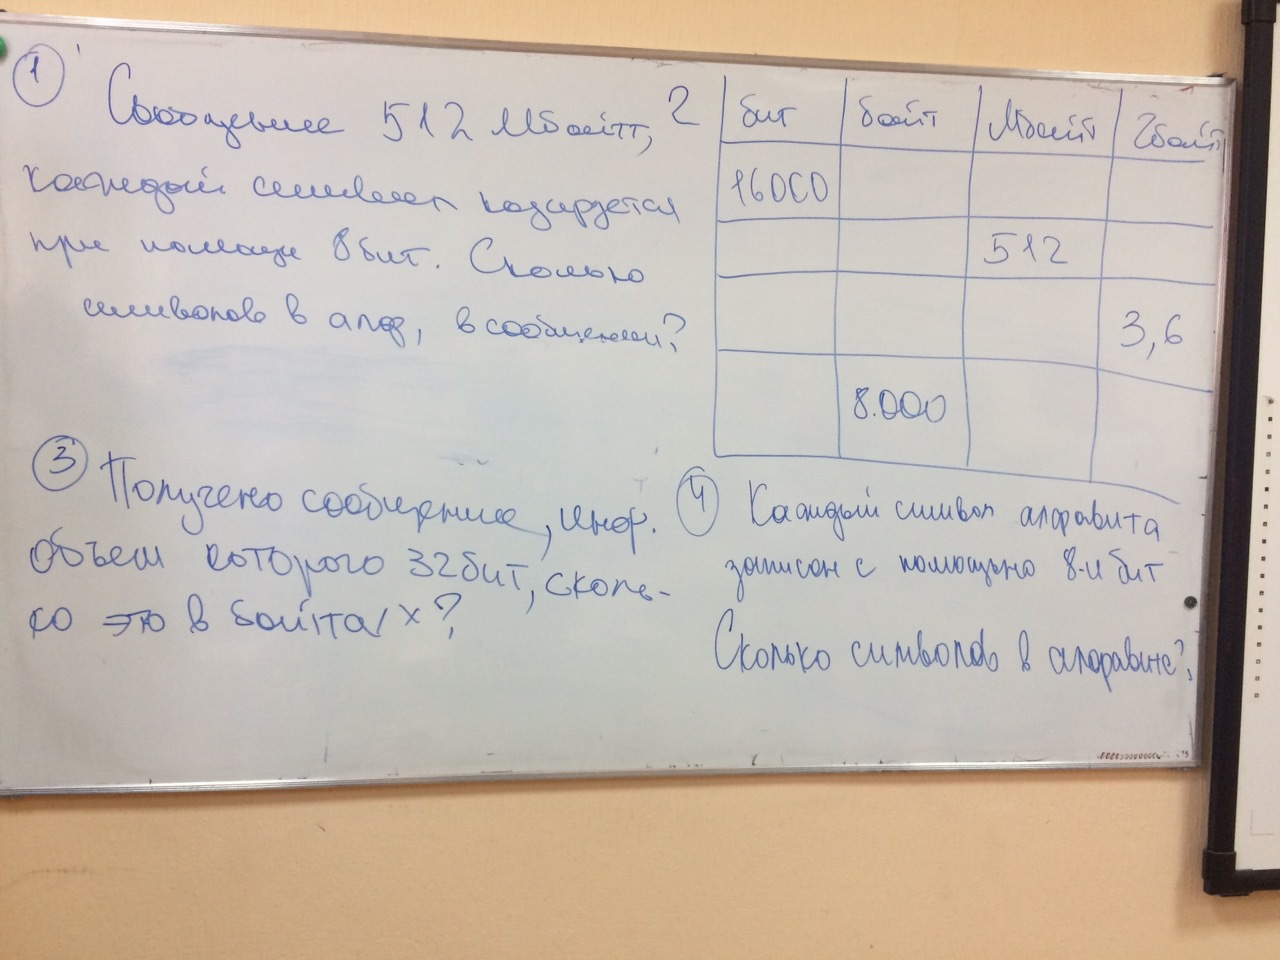 1
Сообщение 512 Мбайт,
каждый символ кодируется
при помощи 8 бит. Сколько
символов в алф, в сообщении?
2
бит байт Мбайт Гбайт
16000
512
3,6
8.000
3
Получено сообщение, инф.
объем которого 32 бит, сколь-
ко это в байтах?
4
Каждый символ алфавита
записан с помощью 8-и бит
Сколько символов в алфавите?